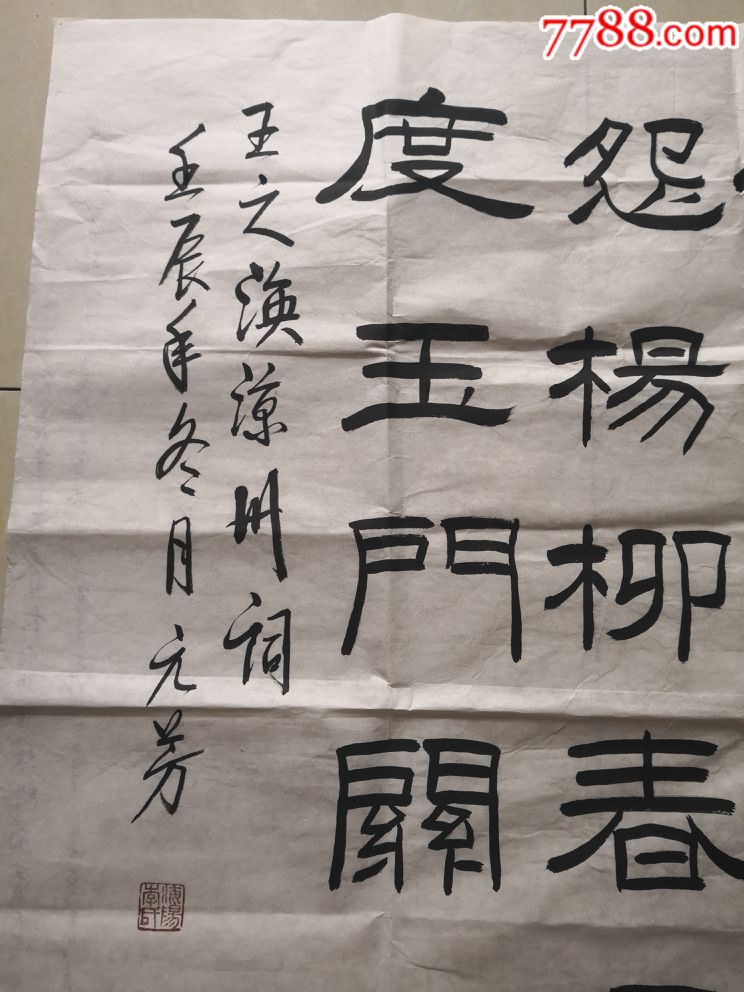 7788.com
怨楊柳春
度玉門關
王之渙涼州詞
壬辰年冬月元芳